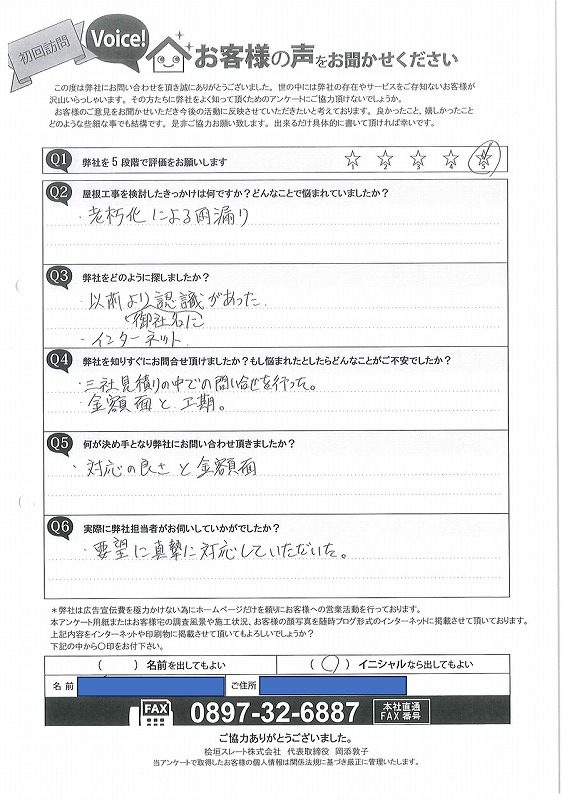 初回訪問
Voice!
お客様の声をお聞かせください
この度は弊社にお問い合わせを頂き誠にありがとうございました。世の中には弊社の存在やサービスをご存知ないお客様が
沢山いらっしゃいます。その方たちに弊社をよく知って頂くためのアンケートにご協力頂けないでしょうか。
お客様のご意見をお聞かせいただき今後の活動に反映させていただきたいと考えております。良かったこと、嬉しかったこと
どのような些細な事でも結構です。是非ご協力お願い致します。出来るだけ具体的に書いて頂ければ幸いです。
Q1 弊社を5段階で評価をお願いします
1 2 3 4 5
Q2 屋根工事を検討したきっかけは何ですか？どんなことで悩まれていましたか？
・老朽化による雨漏り
Q3 弊社をどのように探しましたか？
・以前より認識があった.
御社名に
・インターネット
Q4 弊社を知りすぐにお問合せ頂けましたか？もし悩まれたとしたらどんなことがご不安でしたか？
・三社見積りの中での問い合せを行った。
・金額面と工期。
Q5 何が決め手となり弊社にお問い合わせ頂きましたか？
・対応の良さと金額面
Q6 実際に弊社担当者がお伺いしていかがでしたか？
・要望に真摯に対応していただいた。
＊弊社は広告宣伝費を極力かけない為にホームページだけを頼りにお客様への営業活動を行っております。
本アンケート用紙またはお客様宅の調査風景や施工状況、お客様の顔写真を随時ブログ形式のインターネットに掲載させて頂いております。
上記内容をインターネットや印刷物に掲載させて頂いてもよろしいでしょうか？
下記の中から〇印をお付下さい。
（　）名前を出してもよい （〇）イニシャルなら出してもよい
名前 ご住所
FAX 0897-32-6887 本社直通 FAX番号
ご協力ありがとうございました。
桧垣スレート株式会社 代表取締役 岡添敦子
当アンケートで取得したお客様の個人情報は関係法規に基づき厳正に管理いたします。